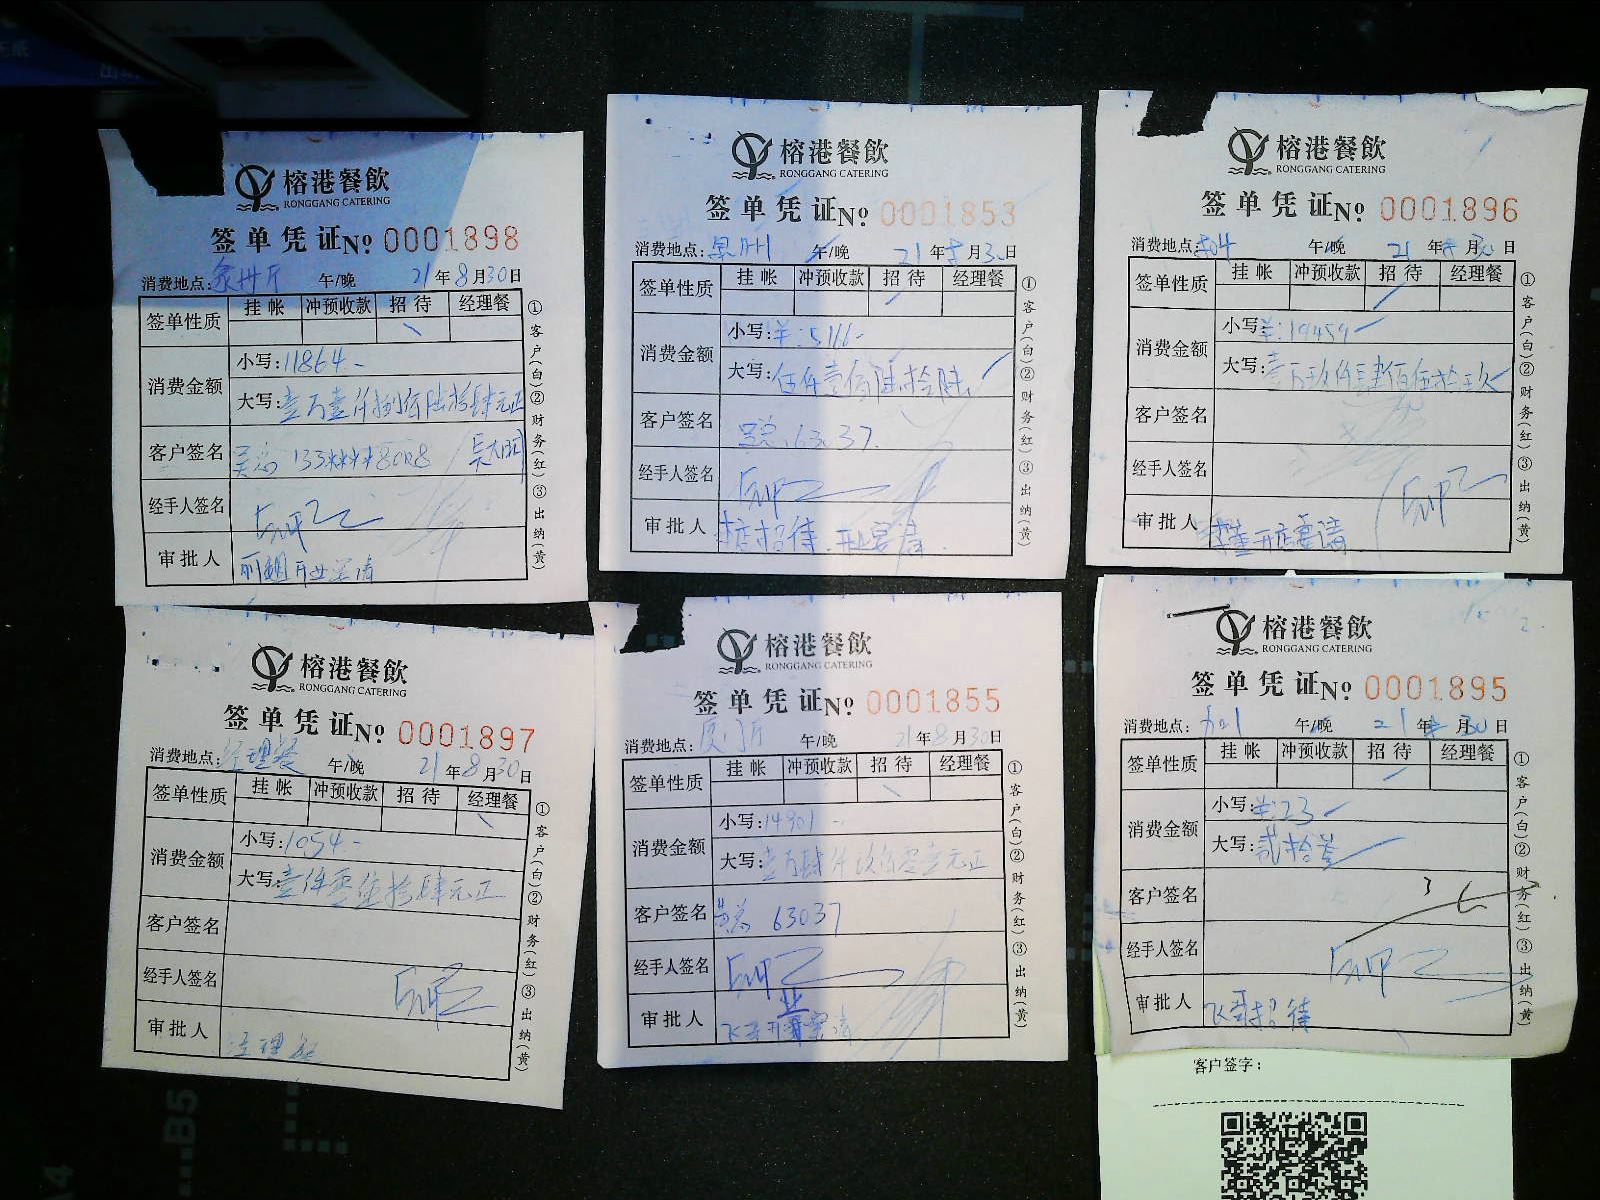 榕港餐飲
RONGGANG CATERING
签单凭证No 0001898
消费地点: 午/晚 21年8月30日
签单性质 挂帐 冲预收款 招待 经理餐
消费金额 小写:11864-
大写:壹万壹仟捌佰陆拾肆元正
客户签名 吴总 133****8008
经手人签名
审批人 开业宴请
①客户(白)②财务(红)③出纳(黄)
榕港餐飲
RONGGANG CATERING
签单凭证No 0001853
消费地点:泉州 午/晚 21年8月30日
签单性质 挂帐 冲预收款 招待 经理餐
消费金额 小写:¥:5166-
大写:伍仟壹佰陆拾陆
客户签名 63037.
经手人签名
审批人 招待.开业宴请.
①客户(白)②财务(红)③出纳(黄)
榕港餐飲
RONGGANG CATERING
签单凭证No 0001896
消费地点: 午/晚 21年8月30日
签单性质 挂帐 冲预收款 招待 经理餐
消费金额 小写:¥:19459-
大写:壹万玖仟肆佰伍拾玖
客户签名
经手人签名
审批人 开店宴请
①客户(白)②财务(红)③出纳(黄)
榕港餐飲
RONGGANG CATERING
签单凭证No 0001897
消费地点:经理餐 午/晚 21年8月30日
签单性质 挂帐 冲预收款 招待 经理餐
消费金额 小写:1054-
大写:壹仟零伍拾肆元正
客户签名
经手人签名
审批人 经理餐
①客户(白)②财务(红)③出纳(黄)
榕港餐飲
RONGGANG CATERING
签单凭证No 0001855
消费地点:厦门厅 午/晚 21年8月30日
签单性质 挂帐 冲预收款 招待 经理餐
消费金额 小写:14901-
大写:壹万肆仟玖佰零壹元正
客户签名 63037
经手人签名
审批人 飞哥开业宴请
①客户(白)②财务(红)③出纳(黄)
榕港餐飲
RONGGANG CATERING
签单凭证No 0001895
消费地点: 午/晚 21年8月30日
签单性质 挂帐 冲预收款 招待 经理餐
消费金额 小写:¥:23-
大写:贰拾叁
客户签名
经手人签名
审批人 飞哥招待
①客户(白)②财务(红)③出纳(黄)
客户签字:
B5
A4